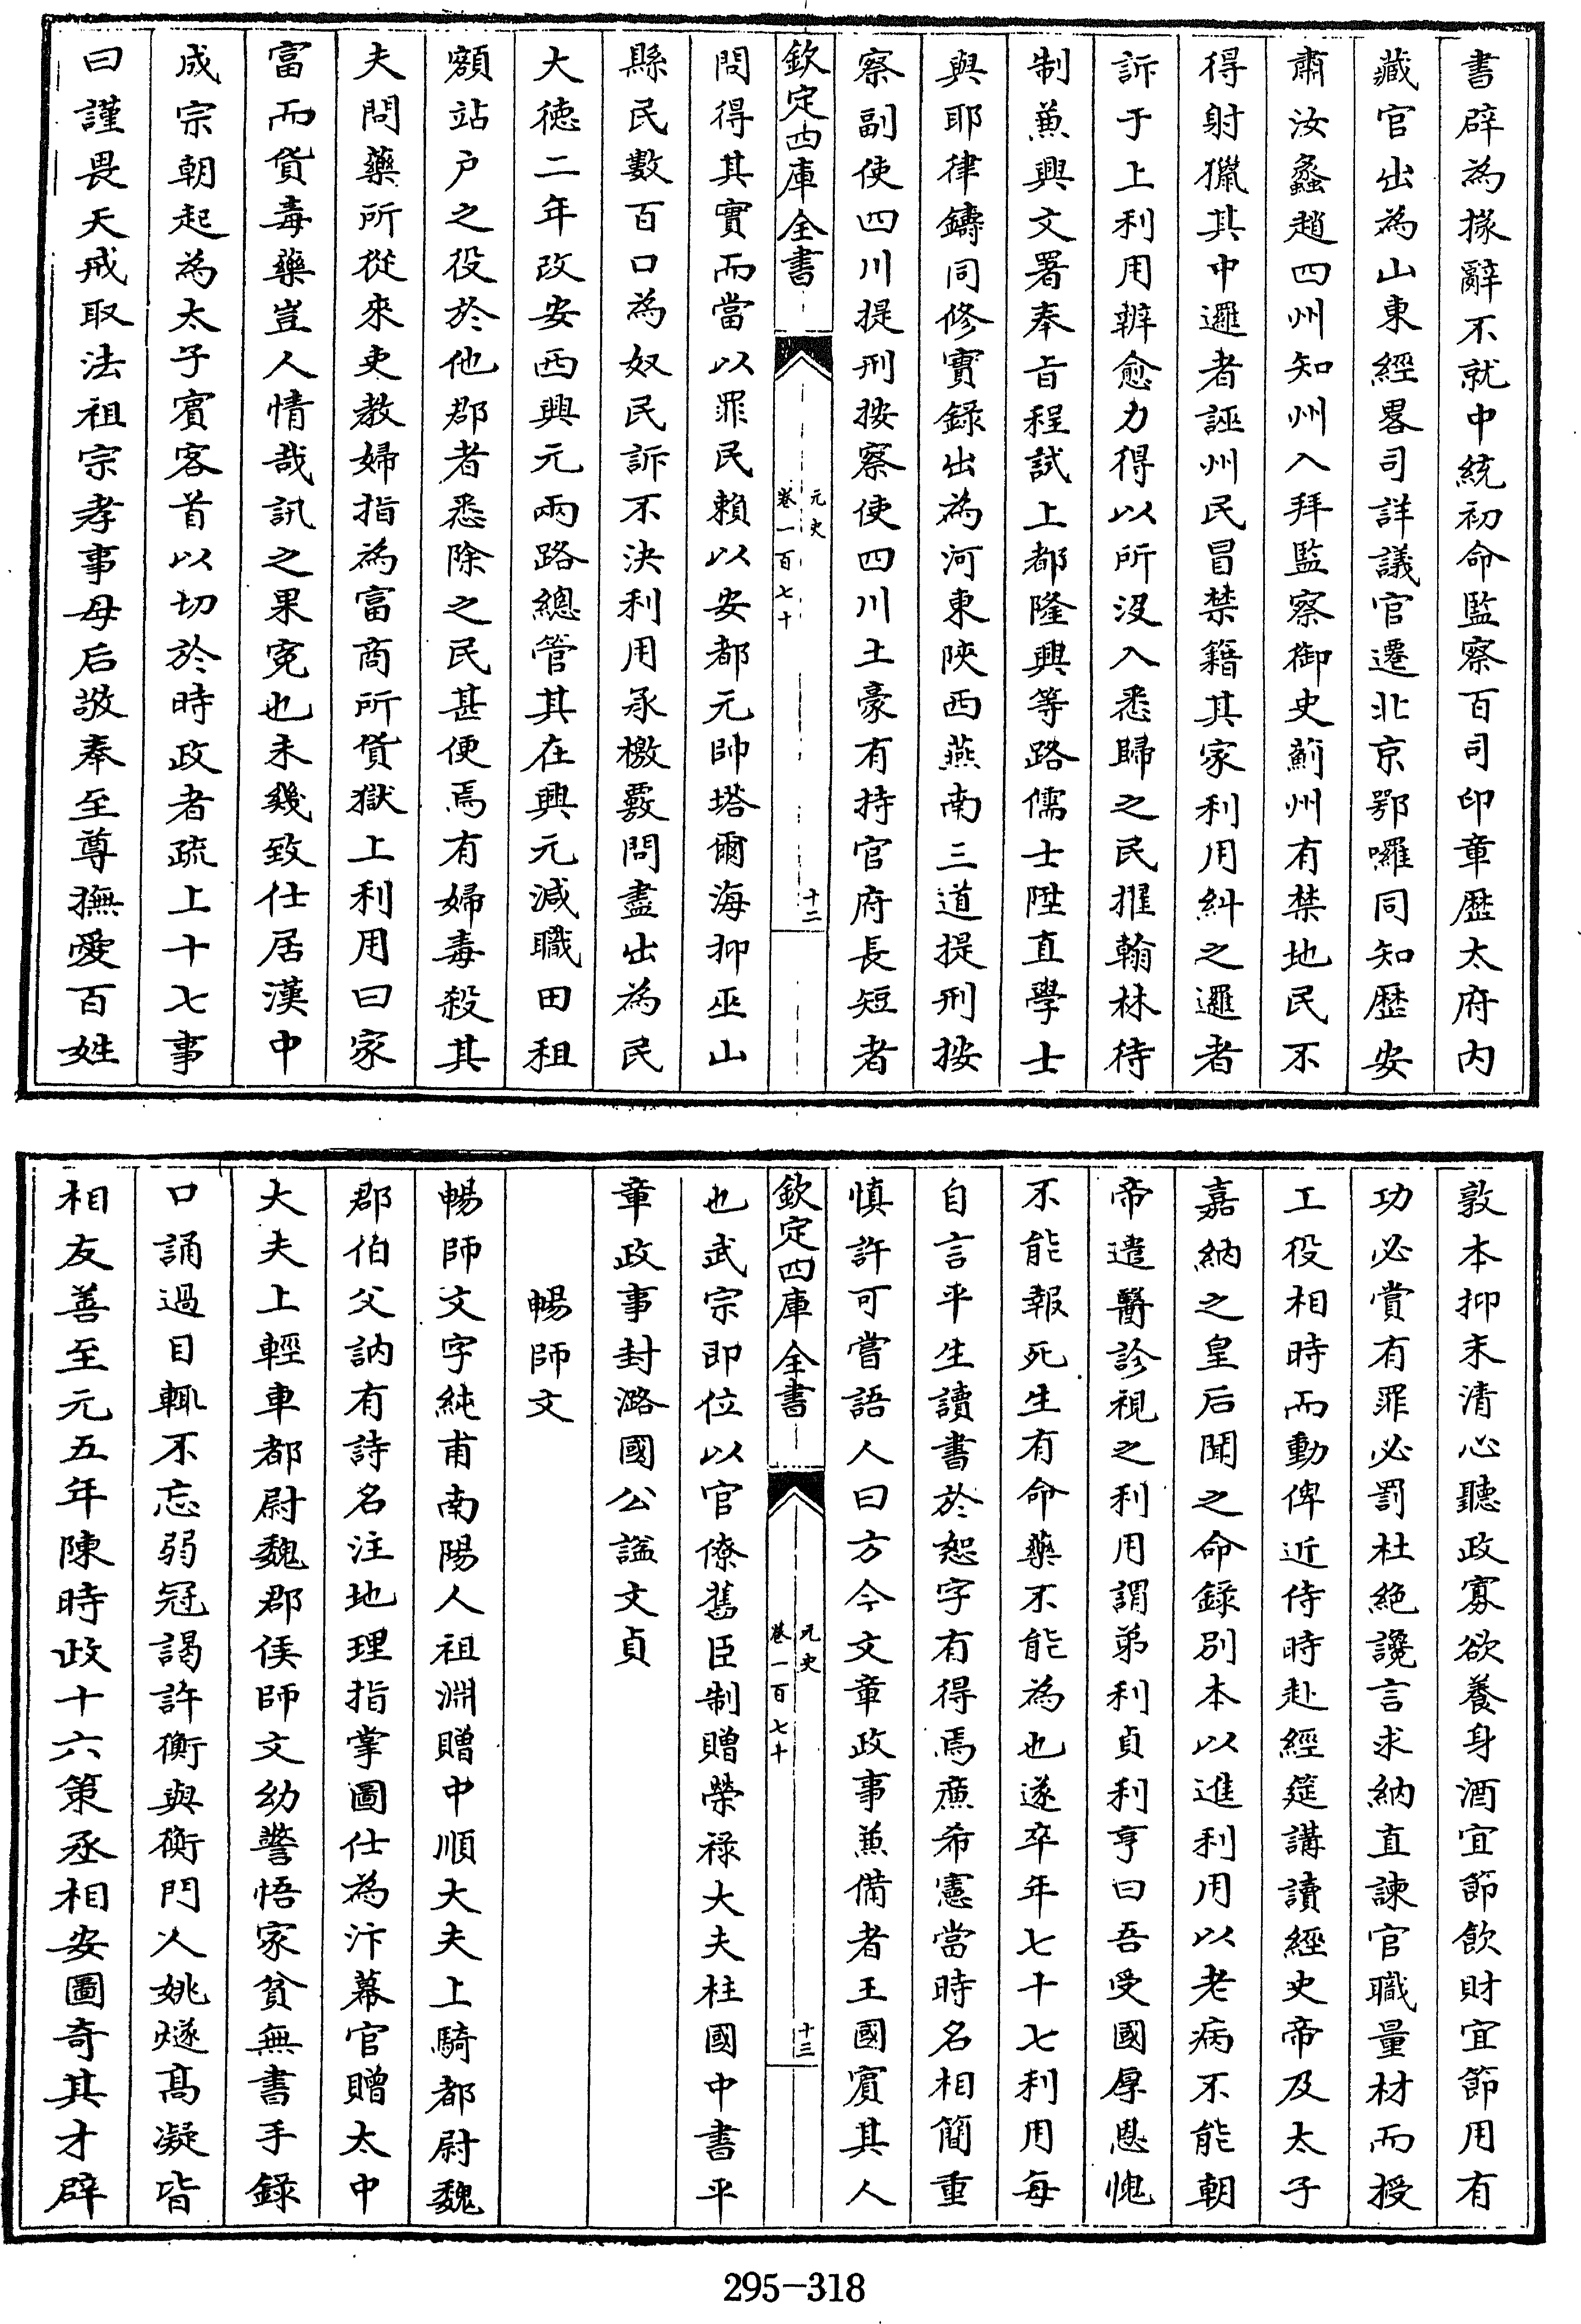 書辟為掾辭不就中統初命監察百司印章歷太府内
藏官出為山東經畧司詳議官遷北京鄂囉同知歷安
肅汝蠡趙四州知州入拜監察御史薊州有禁地民不
得射獵其中邏者誣州民冒禁籍其家利用糾之邏者
訴于上利用辨愈力得以所没入悉歸之民擢翰林待
制兼興文署奉旨程試上都隆興等路儒士陞直學士
與耶律鑄同修實錄出為河東陜西燕南三道提刑按
察副使四川提刑按察使四川土豪有持官府長短者
欽定四庫全書
元史
卷一百七十
十二
問得其實而當以罪民賴以安都元帥塔爾海抑巫山
縣民數百口為奴民訴不決利用承檄覈問盡出為民
大德二年改安西興元兩路總管其在興元減職田租
額站户之役於他郡者悉除之民甚便焉有婦毒殺其
夫問藥所從來吏教婦指為富商所貨獄上利用曰家
富而貨毒藥豈人情哉訊之果寃也未幾致仕居漢中
成宗朝起為太子賓客首以切於時政者疏上十七事
曰謹畏天戒取法祖宗孝事母后敬奉至尊撫愛百姓
敦本抑末清心聽政寡欲養身酒宜節飲財宜節用有
功必賞有罪必罰杜絶讒言求納直諫官職量材而授
工役相時而動俾近侍時赴經筵講讀經史帝及太子
嘉納之皇后聞之命錄別本以進利用以老病不能朝
帝遣醫診視之利用謂弟利貞利亨曰吾受國厚恩愧
不能報死生有命藥不能為也遂卒年七十七利用每
自言平生讀書於恕字有得焉廉希憲當時名相簡重
慎許可嘗語人曰方今文章政事兼備者王國賓其人
欽定四庫全書
元史
卷一百七十
十三
也武宗即位以官僚舊臣制贈榮禄大夫柱國中書平
章政事封潞國公諡文貞
暢師文
暢師文字純甫南陽人祖淵贈中順大夫上騎都尉魏
郡伯父訥有詩名注地理指掌圖仕為汴幕官贈太中
大夫上輕車都尉魏郡侯師文幼警悟家貧無書手錄
口誦過目輒不忘弱冠謁許衡與衡門人姚燧高凝皆
相友善至元五年陳時政十六策丞相安圖奇其才辟
295-318